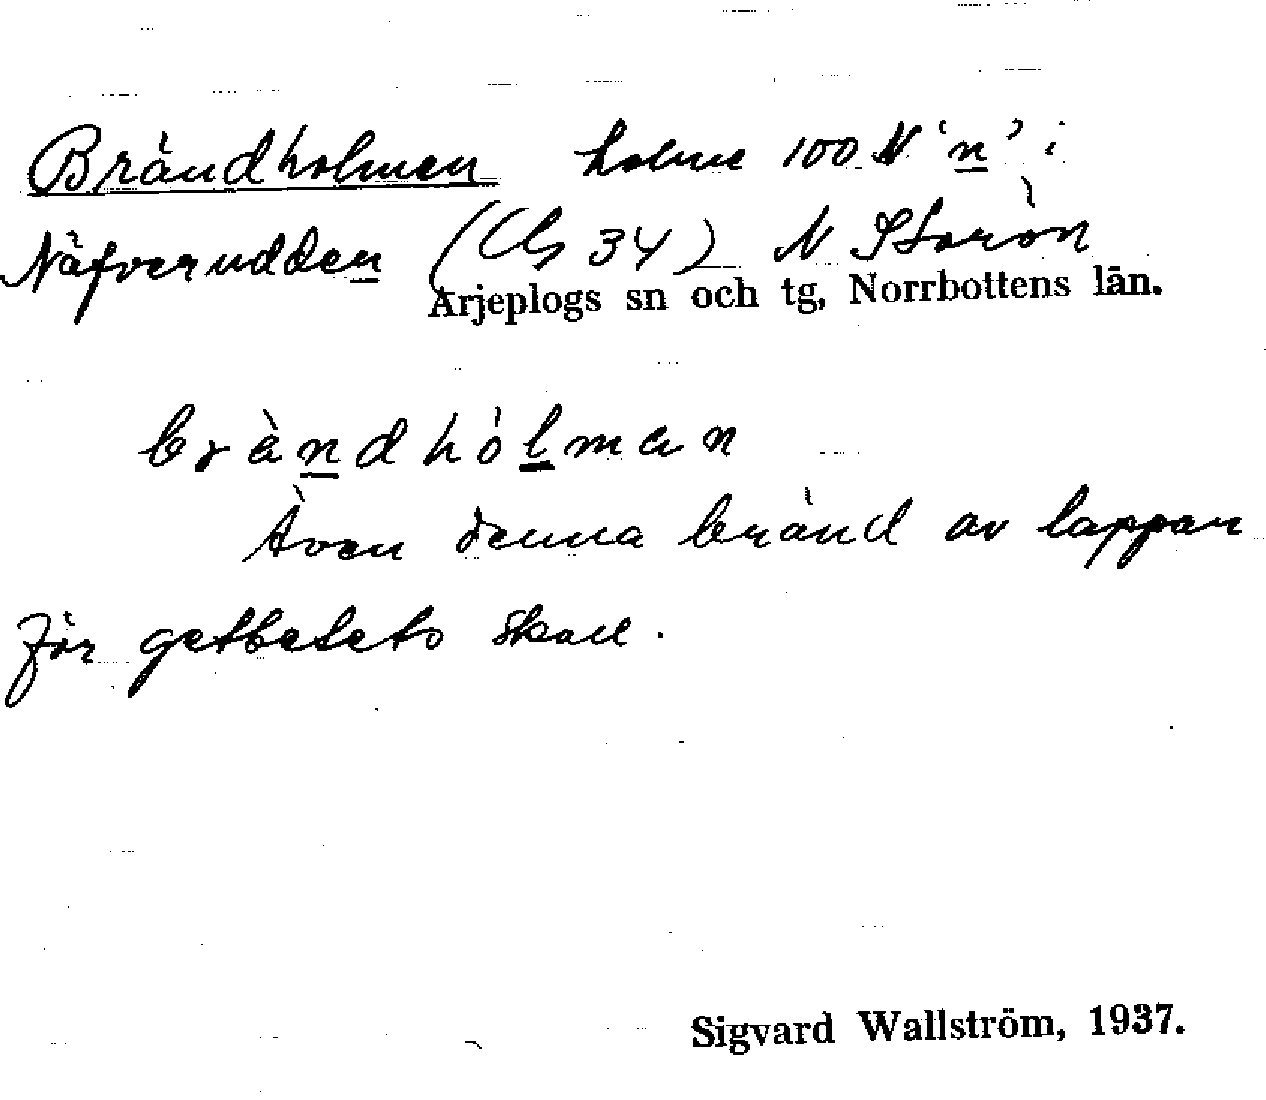 Brändholmen holme 100 N 'n' i
Näfverudden (Cb 34) N Storön
Arjeplogs sn och tg, Norrbottens län.
brändhólman
Även denna bränd av lappar
för getbetets skull.
Sigvard Wallström, 1937.